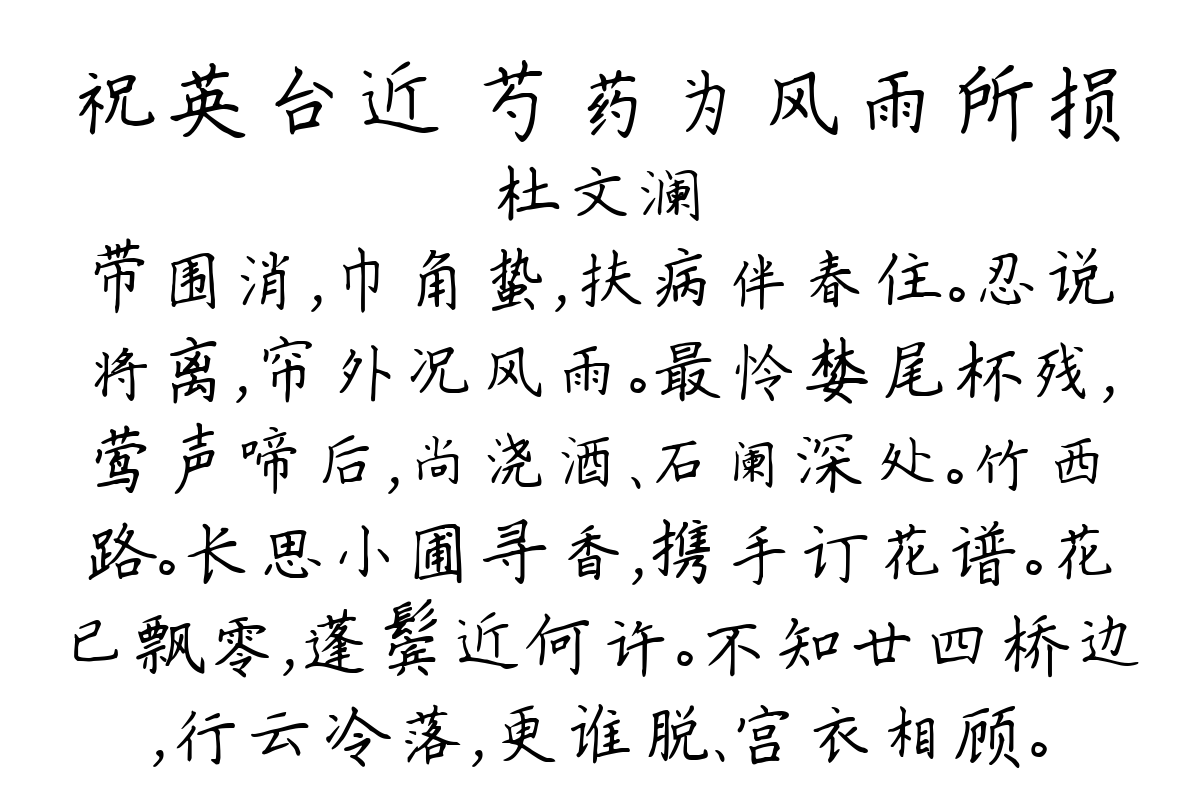 祝英台近 芍药为风雨所损
杜文澜
带围消,巾角蛰,扶病伴春住。忍说
将离,帘外况风雨。最怜婪尾杯残,
莺声啼后,尚浇酒、石阑深处。竹西
路。长思小圃寻香,携手订花谱。花
已飘零,蓬鬓近何许。不知廿四桥边
,行云冷落,更谁脱、宫衣相顾。